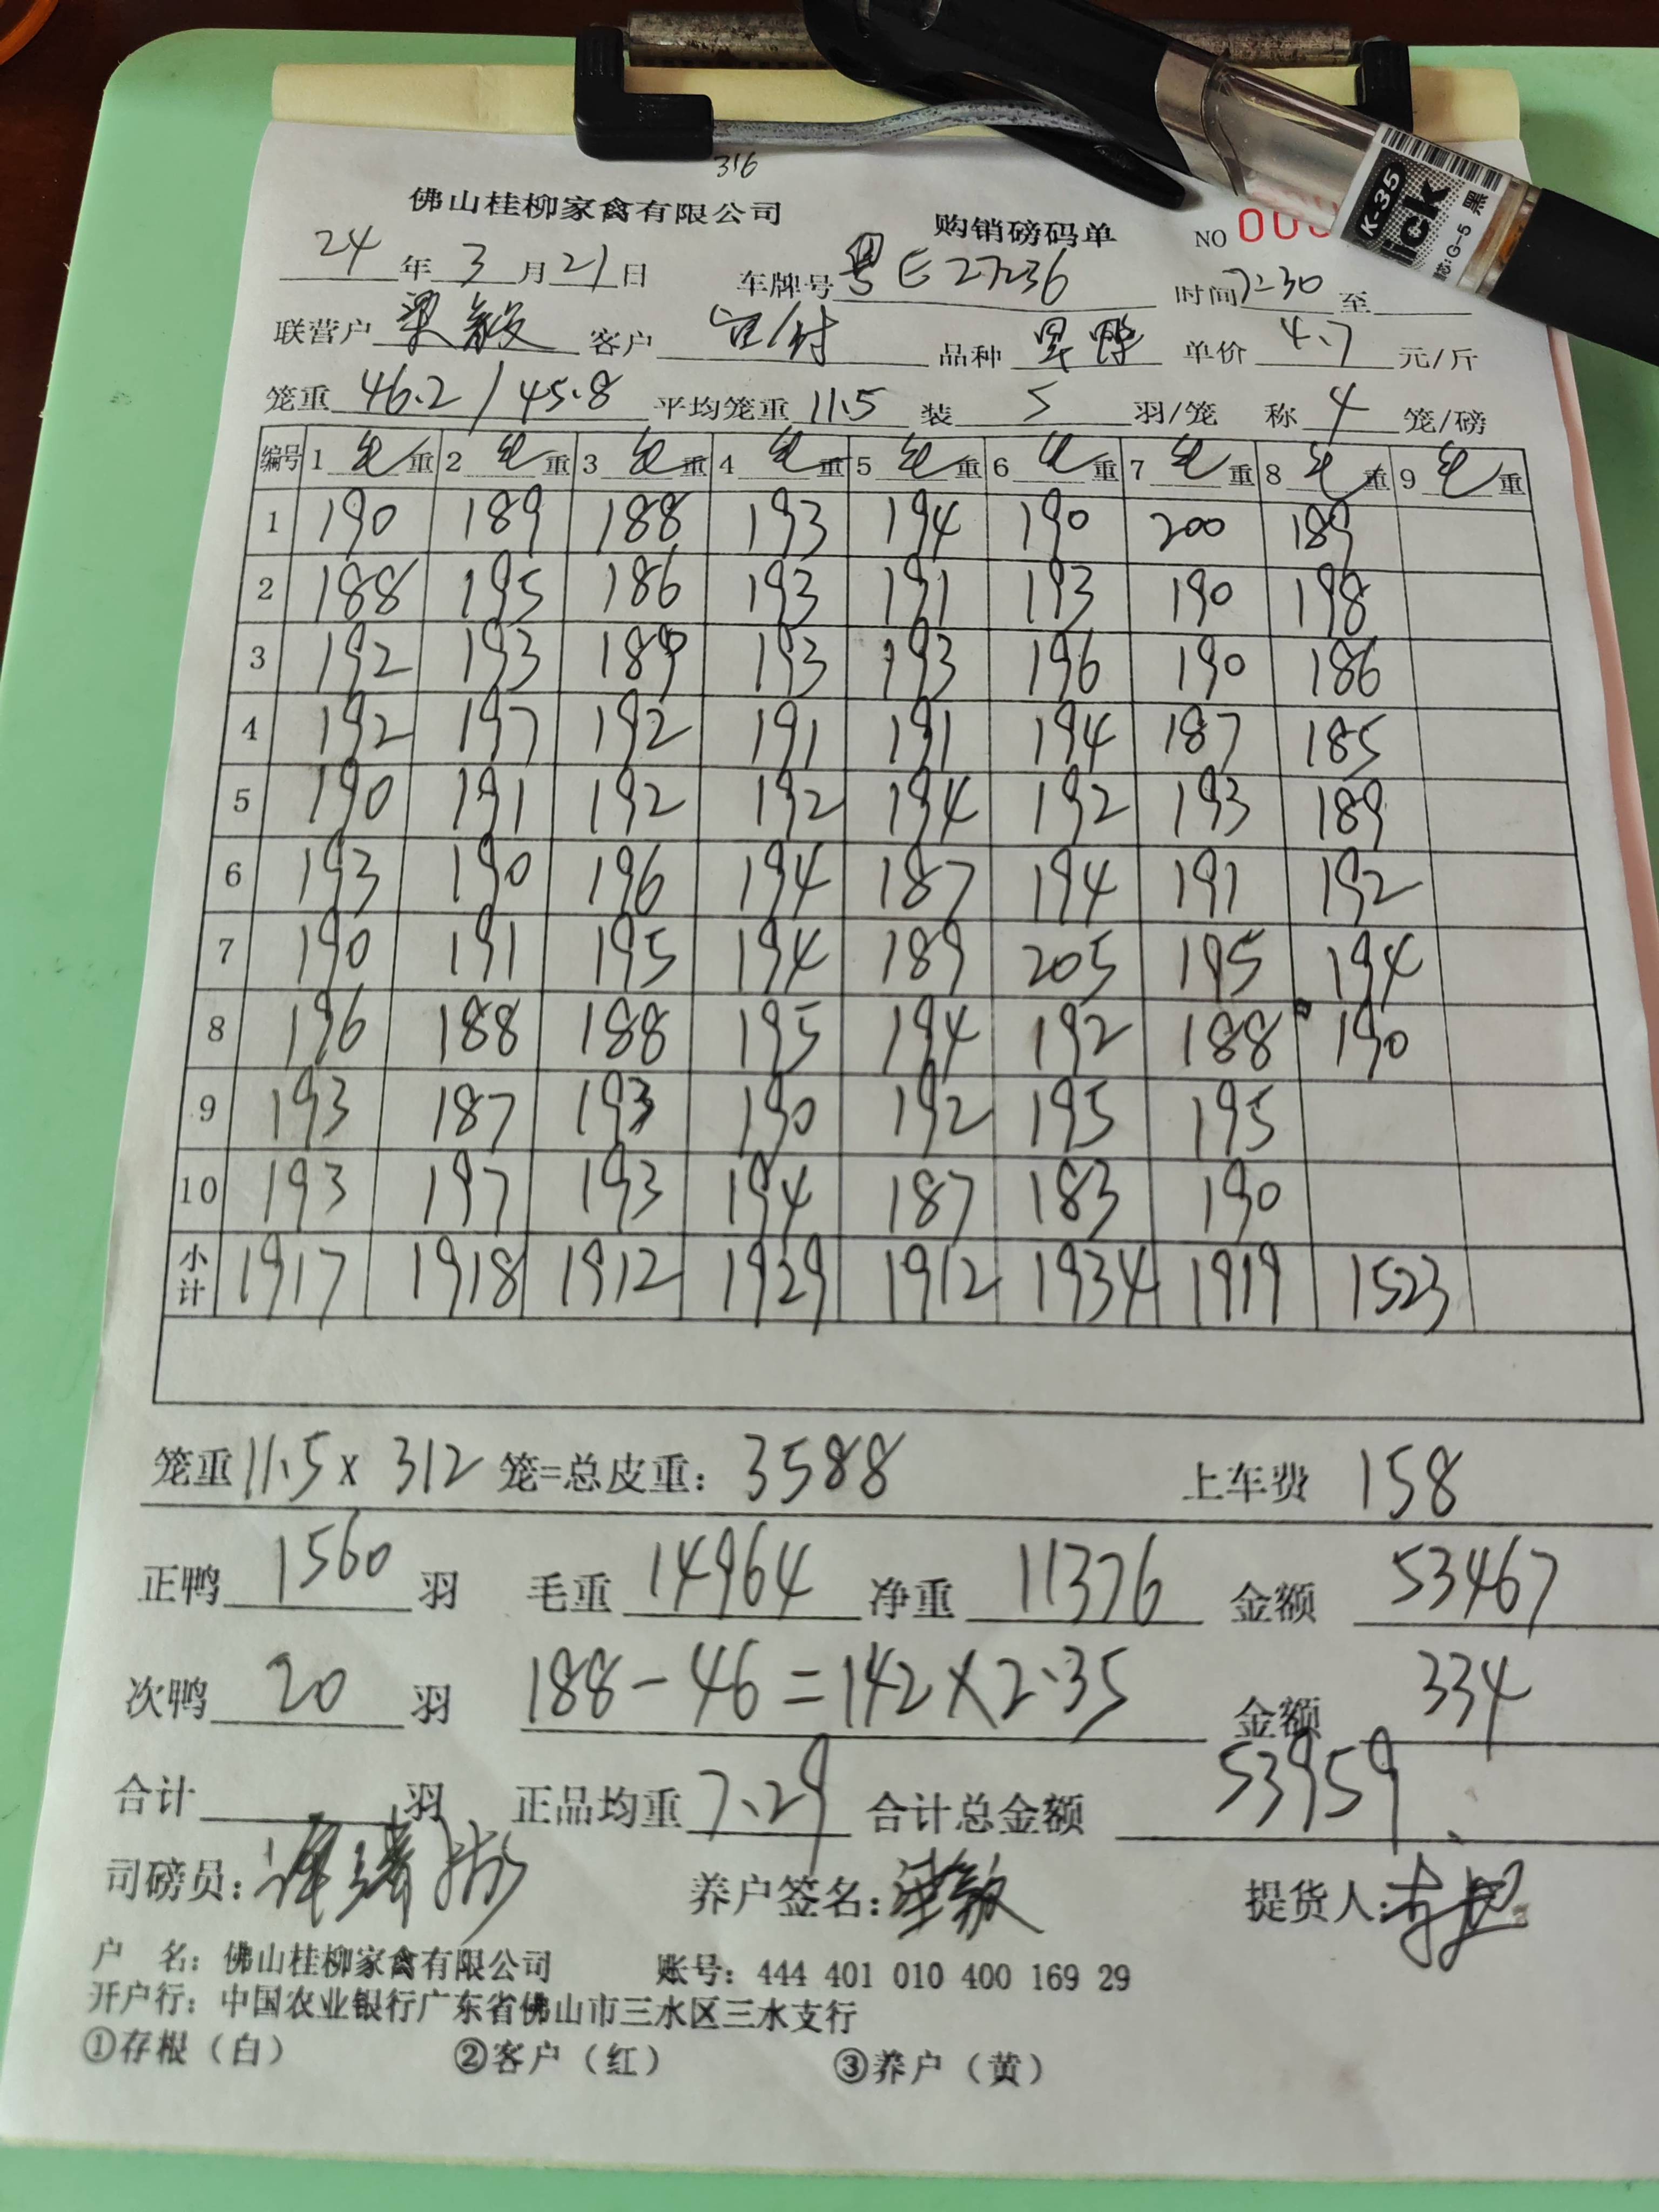 316
佛山桂柳家禽有限公司 购销磅码单 NO 00
24 年 3 月 21 日 车牌号 粤E 27236 时间 7:30 至
联营户 梁毅 客户 品种 单价 4.7 元/斤
笼重 46.2 / 45.8 平均笼重 11.5 装 5 羽/笼 称 4 笼/磅
编号 1 毛重 2 毛重 3 毛重 4 毛重 5 毛重 6 毛重 7 毛重 8 毛重 9 毛重
1 190 189 188 193 194 190 200 189
2 188 195 186 193 191 193 190 198
3 192 193 189 193 193 196 190 186
4 192 197 192 191 191 194 187 185
5 190 191 192 192 194 192 193 189
6 193 190 196 194 187 194 191 192
7 190 191 195 194 189 205 195 194
8 196 188 188 195 194 192 188 190
9 193 187 193 190 192 195 195
10 193 197 193 194 187 183 190
小计 1917 1918 1912 1929 1912 1934 1919 1523
笼重 11.5 x 312 笼=总皮重: 3588 上车费 158
正鸭 1560 羽 毛重 14964 净重 11376 金额 53467
次鸭 20 羽 188-46=142×2.35 金额 334
合计 羽 正品均重 7.29 合计总金额 53959
司磅员: 养户签名: 梁毅 提货人:
户 名: 佛山桂柳家禽有限公司 账号: 444 401 010 400 169 29
开户行: 中国农业银行广东省佛山市三水区三水支行
①存根(白) ②客户(红) ③养户(黄)
K-35
ick
G-5 黑